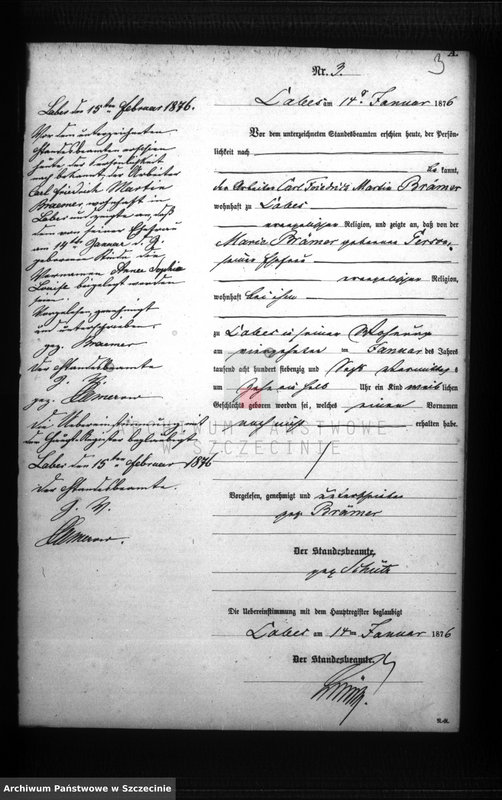 A.
3
Nr. 3.
Labes am 14t Januar 1876
Vor dem unterzeichneten Standesbeamten erschien heute, der Persön-
lichkeit nach
be kannt,
der Arbeiter Carl Friedrich Martin Brämer
wohnhaft zu Labes
evangelischer Religion, und zeigte an, daß von der
Maria Brämer geborene
seiner Ehefrau
evangelischer Religion,
wohnhaft bei ihm
zu Labes in seiner Wohnung
am vierzehnten im Januar des Jahres
tausend acht hundert siebenzig und sechs Vormittags
um zehn ein halb Uhr ein Kind weib lichen
Geschlechts geboren worden sei, welches einen Vornamen
noch nicht erhalten habe.
Vorgelesen, genehmigt und unterschrieben
gez Brämer
Der Standesbeamte,
gez Schütz
Die Uebereinstimmung mit dem Hauptregister beglaubigt
Labes am 14ten Januar 1876
Der Standesbeamte.
Schütz.
Labes den 15ten Februar 1876.
Vor dem unterzeichneten
Standesbeamten erschien
heute, der Persönlichkeit
nach bekannt, der Arbeiter
Carl Friedrich Martin
Braemer, wohnhaft in
Labes und zeigte an, daß
dem von seiner Ehefrau
am 14ten Januar d. J.
geborenen Kinde die
Vornamen Anna Sophia
Louise beigelegt worden
seien.
Vorgelesen, genehmigt
und unterschrieben
gez. Braemer
Der Standesbeamte
gez.
Die Uebereinstimmung mit
dem Hauptregister beglaubigt
Labes den 15ten Februar 1876
Der Standesbeamte.
ARCHIWUM PAŃSTWOWE
W SZCZECINIE
Archiwum Państwowe w Szczecinie